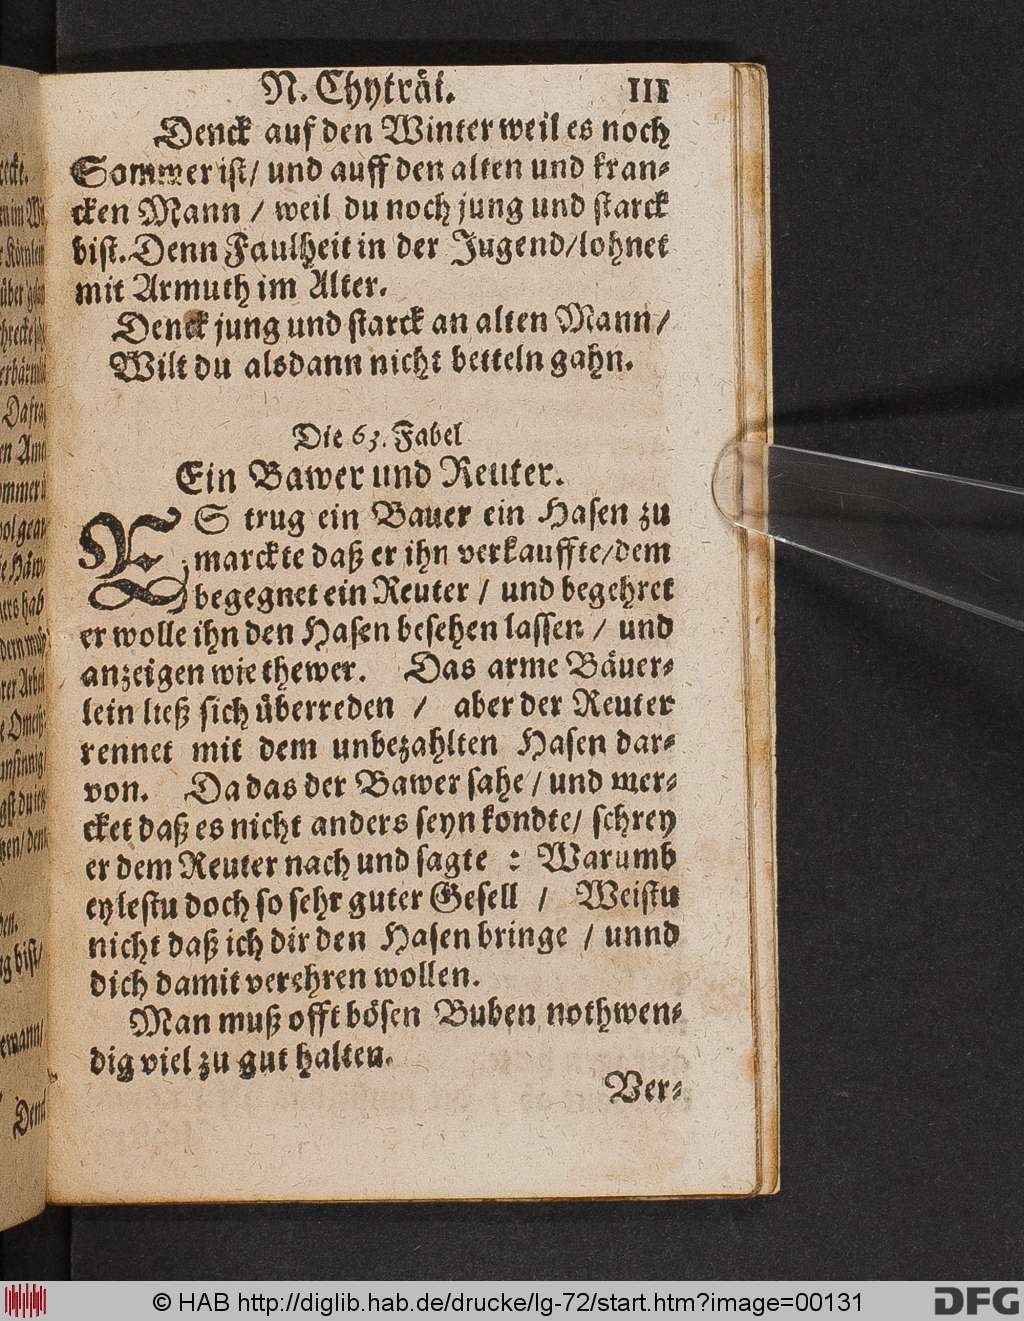 N. Chyträi. 111
Denck auf den Winter weil es noch
Sommer ist/ und auff den alten und kran-
cken Mann / weil du noch jung und starck
bist. Denn Faulheit in der Jugend/lohnet
mit Armuth im Alter.
Denck jung und starck an alten Mann/
Wilt du alsdann nicht betteln gahn.
Die 63. Fabel
Ein Bawer und Reuter.
ES trug ein Bauer ein Hasen zu
marckte daß er ihn verkauffte/dem
begegnet ein Reuter / und begehret
er wolle ihn den Hasen besehen lassen / und
anzeigen wie thewer. Das arme Bäuer-
lein ließ sich überreden / aber der Reuter
rennet mit dem unbezahlten Hasen dar-
von. Da das der Bawer sahe / und mer-
cket daß es nicht anders seyn kondte/ schrey
er dem Reuter nach und sagte : Warumb
eylestu doch so sehr guter Gesell / Weistu
nicht daß ich dir den Hasen bringe / unnd
dich damit verehren wollen.
Man muß offt bösen Buben nothwen-
dig viel zu gut halten.
Ver-
© HAB http://diglib.hab.de/drucke/lg-72/start.htm?image=00131
DFG